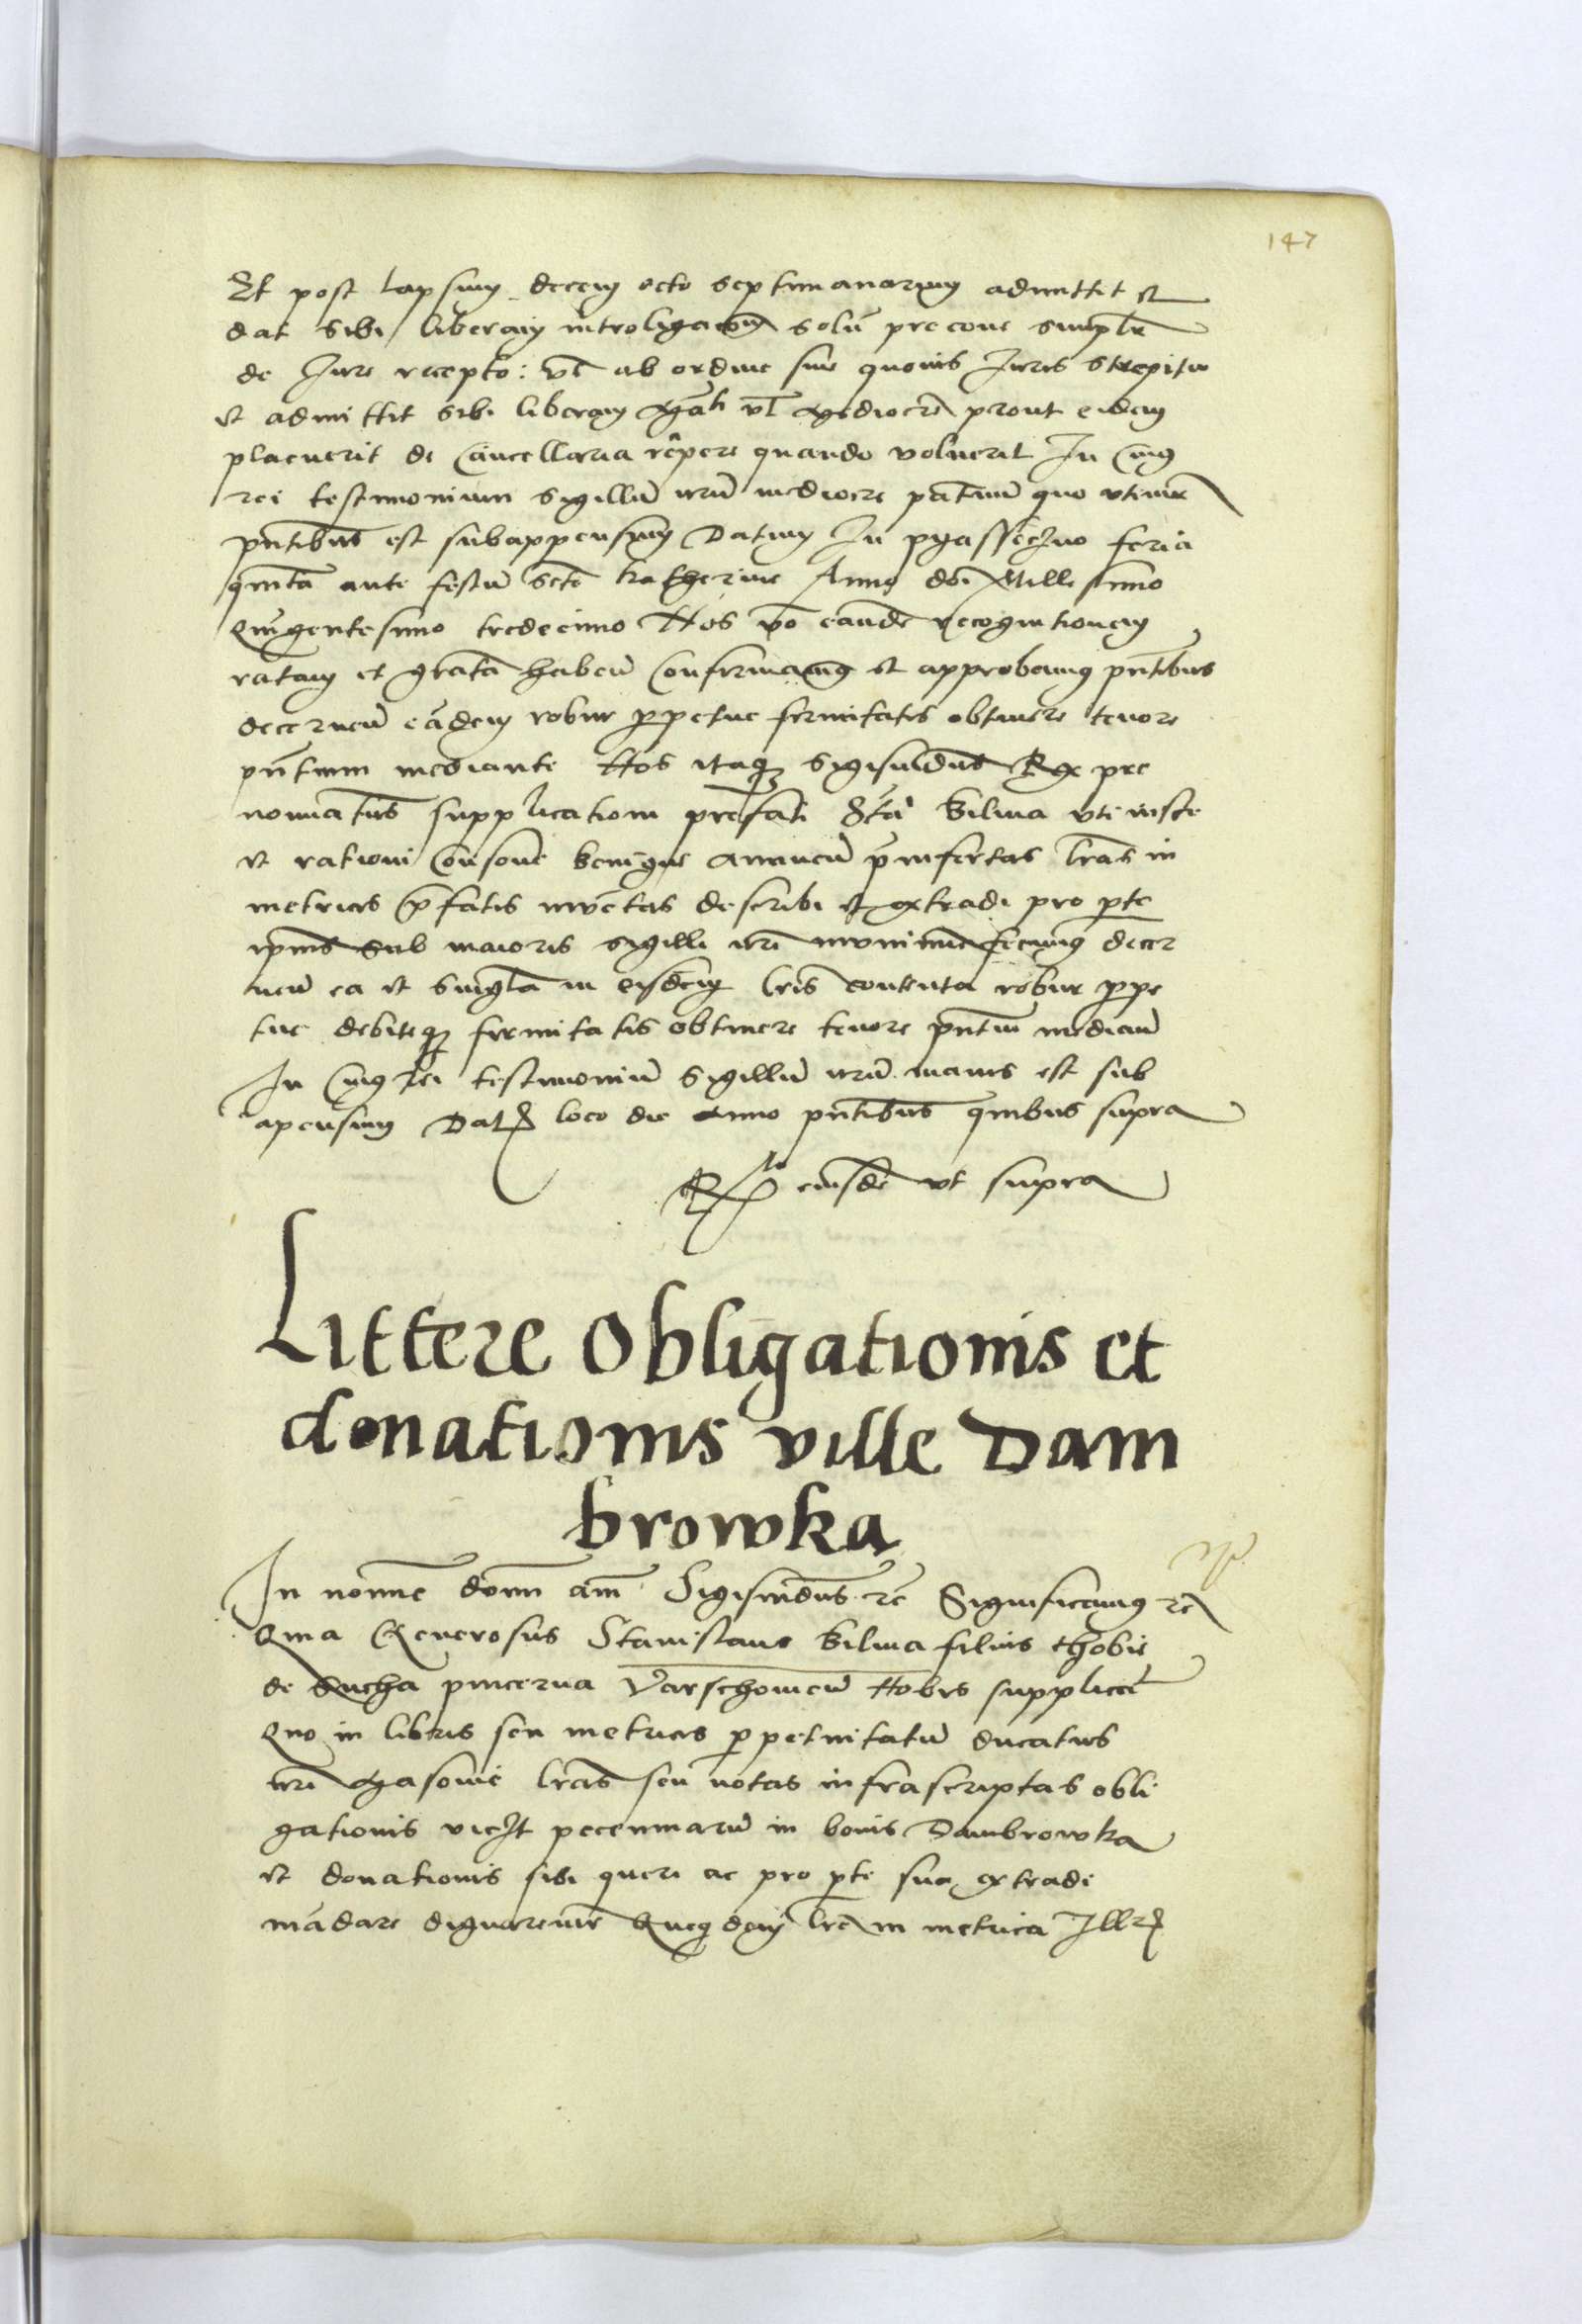 147
Et post lapsum decem octo septimanarum admittit et
dat sibi liberam introligacōm solū precone simplr̄
de Iure recepto: vl ab ordine sine quovis Iuris strepitu
et admittit sibi liberam vl mediocrē prout eidem
placuerit de Cancellaria rēpere quando voluerit In cuius
rei testimonium sigillū nrm̄ mediocre quo vtimur
pn̄tibus est subappensum Datum In pyassēczno feria
quinta ante festū sctē katherine Anno dnī Millesimo
Quīgentesimo tredecimo Nos vō eandē recognitionem
ratam et gratā habeñ Confirmamus et approbamus pn̄tibus
decerneñ eādem robur perpetue firmitatis obtinere tenore
pn̄tium mediante Nos itaqz Sigismūdus Rex pre
nominatus supplicationi prefati Stāi Kilina vti iuste
et rationi Consone benigne annueñ p̄insertas lrās in
metricis p̄fatis invētas describi et extradi pro parte
ipius sub maioris sigilli nrī munimine fecimus decer
neñ ea et singla in eisdem lrīs contenta robur perpe
tue debiteqz firmitatis obtinere tenore pn̄tiū median̄
In cuius rei testimoniū Sigillū nrm̄ maius est sub
apensum Dat loco die anno pn̄tibus quibus supra
Rto eiusdē vt supra
Littere Obligationis et
donationis ville Dam
browka
In nomine domī amē Sigismūdus rc̄ Significamus rc̄
Quia Generosus Stanislaus Kilina filius thobie
de Sucha pincerna Varschovieñ Nobis supplicāt
Quo in libris seu metricis perpetuitatū ducatus
nrī Masovie lrās seu notas infrascriptas obli
gationis viczt pecunniarū in bonis Dambrowka
et donationis sibi queri ac pro parte sua extradi
mādare dignaremur Quequidem lrē in metrica Illr